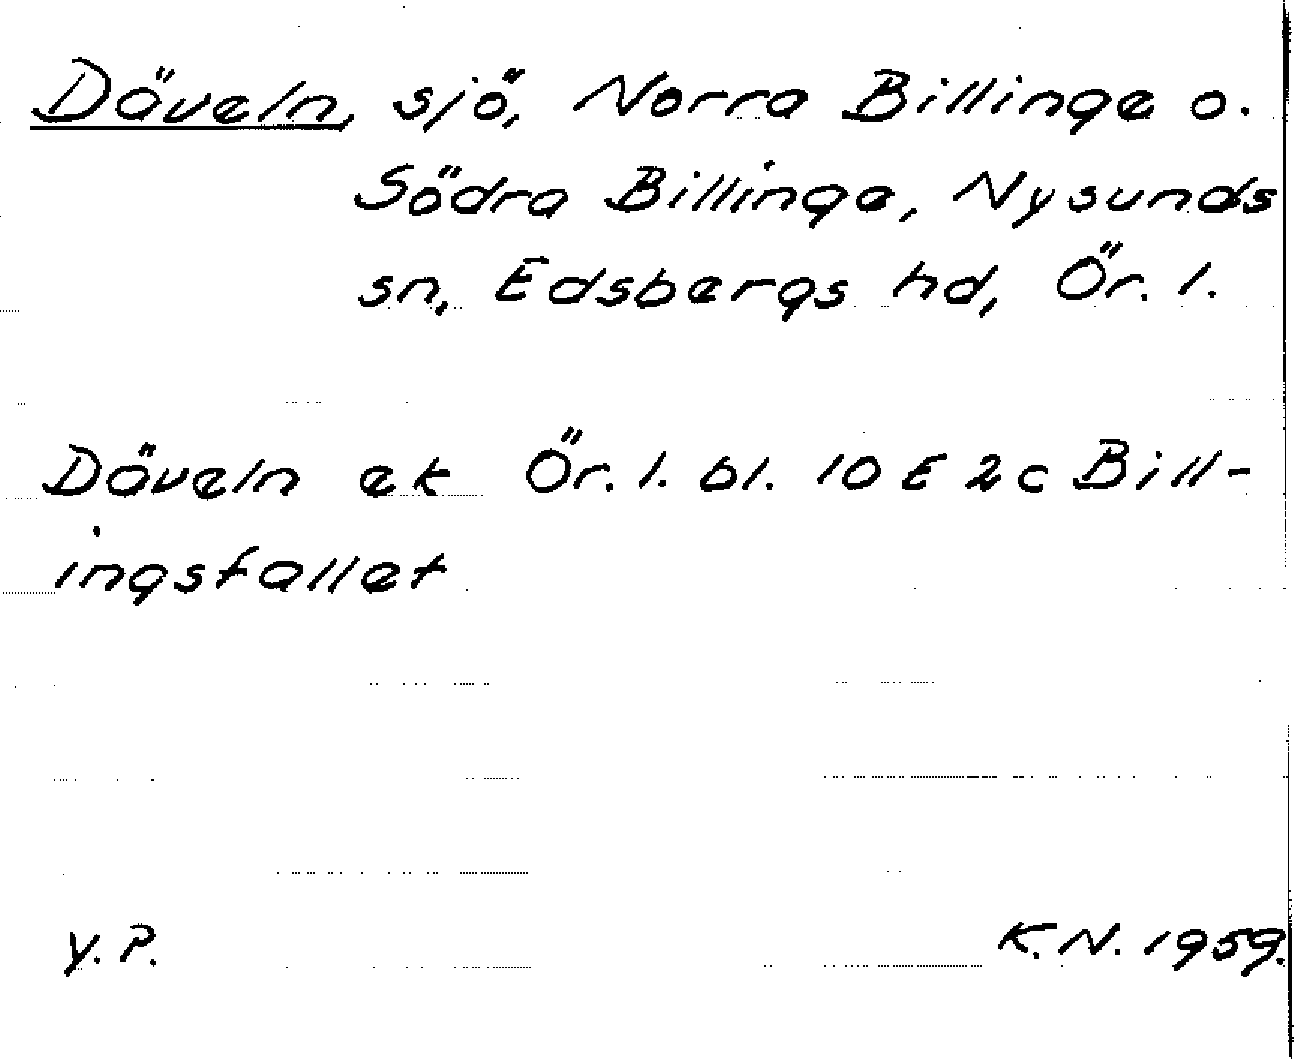 Döveln, sjö, Norra Billinge o.
Södra Billinge, Nysunds
sn, Edsbergs hd, Ör. l.
Döveln ek Ör. l. bl. 10 E 2c Bill-
ingsfallet
Y. P.
K. N. 1959.